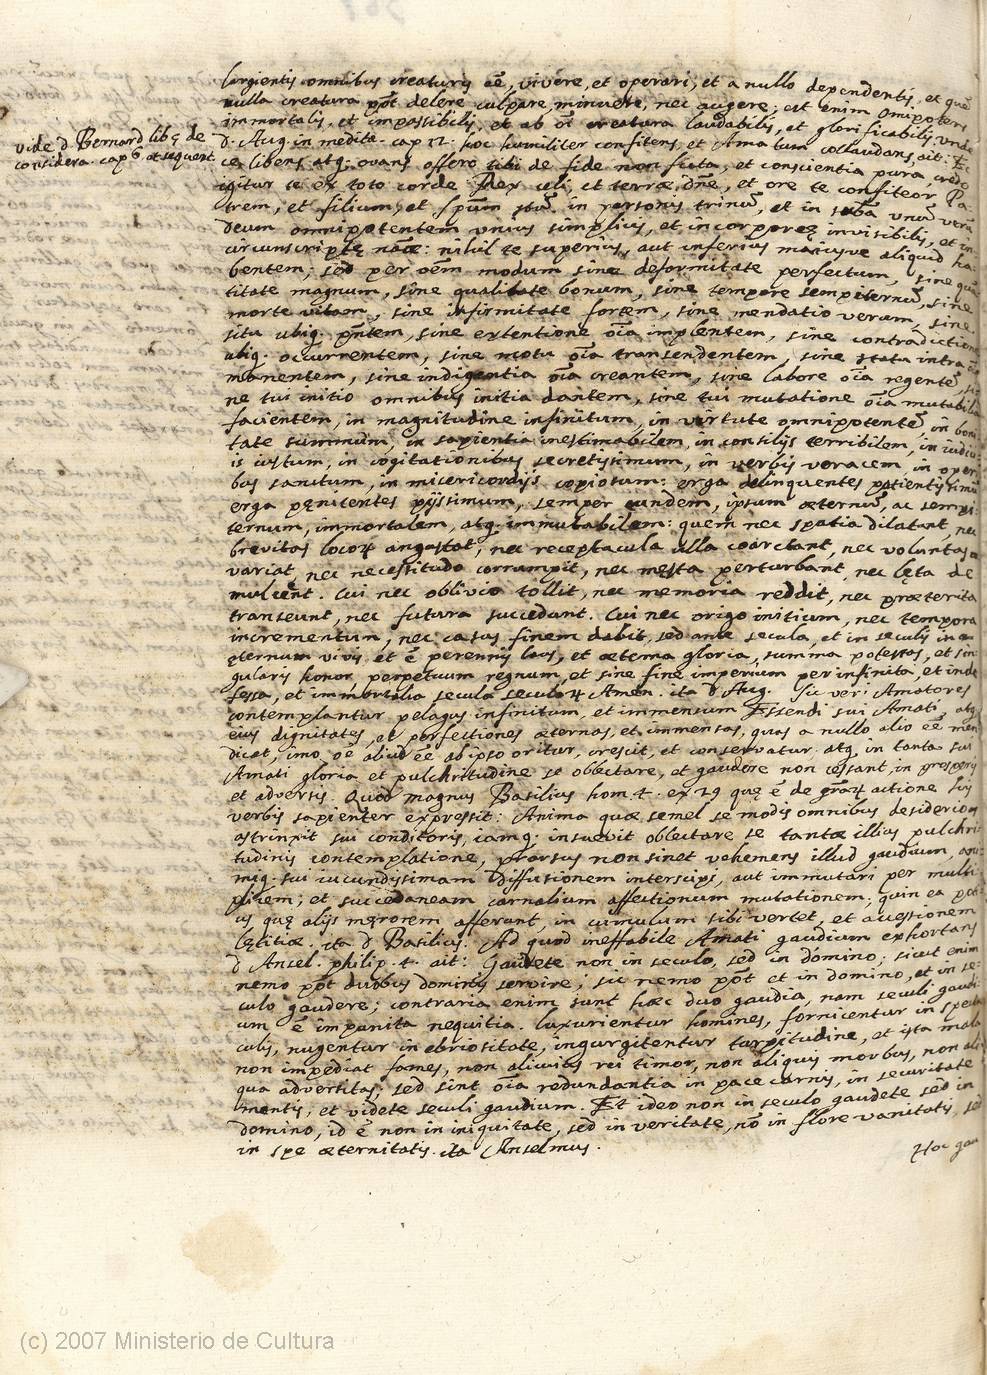 vide d Bernard lib 5 de
considera. cap 6 et sequent.
largientis omnibus creaturis eē, vivere, et operari, et a nullo dependentis, et quē
nulla creatura pōt delere culpare, minuere, nec augere; est enim Omnipotens
immortalis, et impassibilis, et ab oī creatura laudabilis, et glorificabilis: unde
d. Aug. in medita. cap 12. hoc humiliter confitens, et Amatum collaudans, ait:
ce libens atq. ovans offero tibi de fide non ficta, et conscientia pura, credo
igitur te ex toto corde Rex celi, et terræ dn̄e, et ore te confiteor, Pa-
trem, et filium, et spūm stū. in personis trinū, et in sūba unū verū
deum omnipotentem unius simplicis, et incorporeę invisibilis, et in
circunscriptę natę: nihil te superius, aut inferius maiusve aliquid ha-
bentem; sed per oēm modum sine deformitate perfectum, sine quā
titate magnum, sine qualitate bonum, sine tempore sempiternū, sine
morte vitam, sine infirmitate fortem, sine mendatio veram, sine
situ ubiq. pn̄tem, sine extentione oīa implentem, sine contradictione
ubiq. occurrentem, sine motu oīa transendentem, sine statu intra oīa
manentem, sine indigentia oīa creantem, sine labore oīa regentē, si
ne tui initio omnibus initia dantem, sine tui mutatione oīa mutabilia
facientem, in magnitudine infinitum, in virtute omnipotentē, in boni
tate summum, in sapientia inestimabilem, in consilijs terribilem, in iudic
is iustum, in cogitationibus secretissimum, in verbis veracem, in operi
bus sanctum, in misericordijs copiosum: erga delinquentes patientissimū
erga pęnitentes pijssimum, semper eundem, ipsum æternū, ac sempi
ternum, immortalem, atq. immutabilem: quem nec spatia dilatant, nec
brevitas locorų angustat, nec receptacula ulla coarctant, nec voluntas
variat, nec necessitudo corrumpit, nec mesta perturbant, nec lęta de
mulcent. Cui nec oblivio tollit, nec memoria reddit, nec præterita
transeunt, nec futura succedunt. Cui nec origo initium, nec tempora
incrementum, nec casus finem dabit, sed ante secula, et in seculis in
ęternum vivis, et ē perennis laus, et æterna gloria, summa potestas, et sin
gularis honor, perpetuum regnum, et sine fine imperium per infinita, et inde
fessa, et immortalia secula seculorų Amen. ita d Aug. Sic veri Amatores
contemplantur pelagus infinitum, et immensum Essendi sui Amati, atq
eius dignitates, et perfectiones æternas, et immensas, quas a nullo alio eē men
dicat, imo oē aliud eē ab ipso oritur, crescit, et conservatur. atq, in tanta sui
Amati gloria et pulchritudine se oblectare, et gaudere non cessant, in prosperis
et adversis. Quod magnus Basilius hom 4. ex 29 quę ē de grārų actione his
verbis sapienter expressit: Anima quæ semel se modis omnibus desiderio
astrinxit sui conditoris, iamq. insuevit oblectare se tantæ illius pulchri
tudinis contemplatione, prorsus non sinet vehemens illud gaudium, ani
miq. sui iucundissimam diffusionem intercipi, aut immutari per multi
plicem, et succedaneam carnalium affectionum mutationem; quin ea po
us quę alijs męrorem afferunt, in cumulum sibi vertet, et accessionem
lętitiæ. ita d Basilius. Ad quod ineffabile Amati gaudium exhortans
d Ansel. philip. 4. ait: Gaudete non in seculo, sed in domino; sicut enim
nemo pōt duobus dominis servire; sic nemo pōt et in domino, et in se
culo gaudere; contraria enim sunt hæc duo gaudia, nam seculi gaudi
um ē impunita nequitia. luxurientur homines, fornicentur in specta
culis, nugentur in ebriositate, ingurgitentur turpitudine, et ista mala
non impediat fames, non alicuius rei timor, non aliquis morbus, non ali
qua adversitas; sed sint oīa redundantia in pace carnis, in securitate
mentis, et videte seculi gaudium. Et ideo non in seculo gaudete sed in
domino, id ē non in iniquitate, sed in veritate, nō in flore vanitatis, sed
in spe æternitatis. ita Anselmus.
Hoc gau
(c) 2007 Ministerio de Cultura